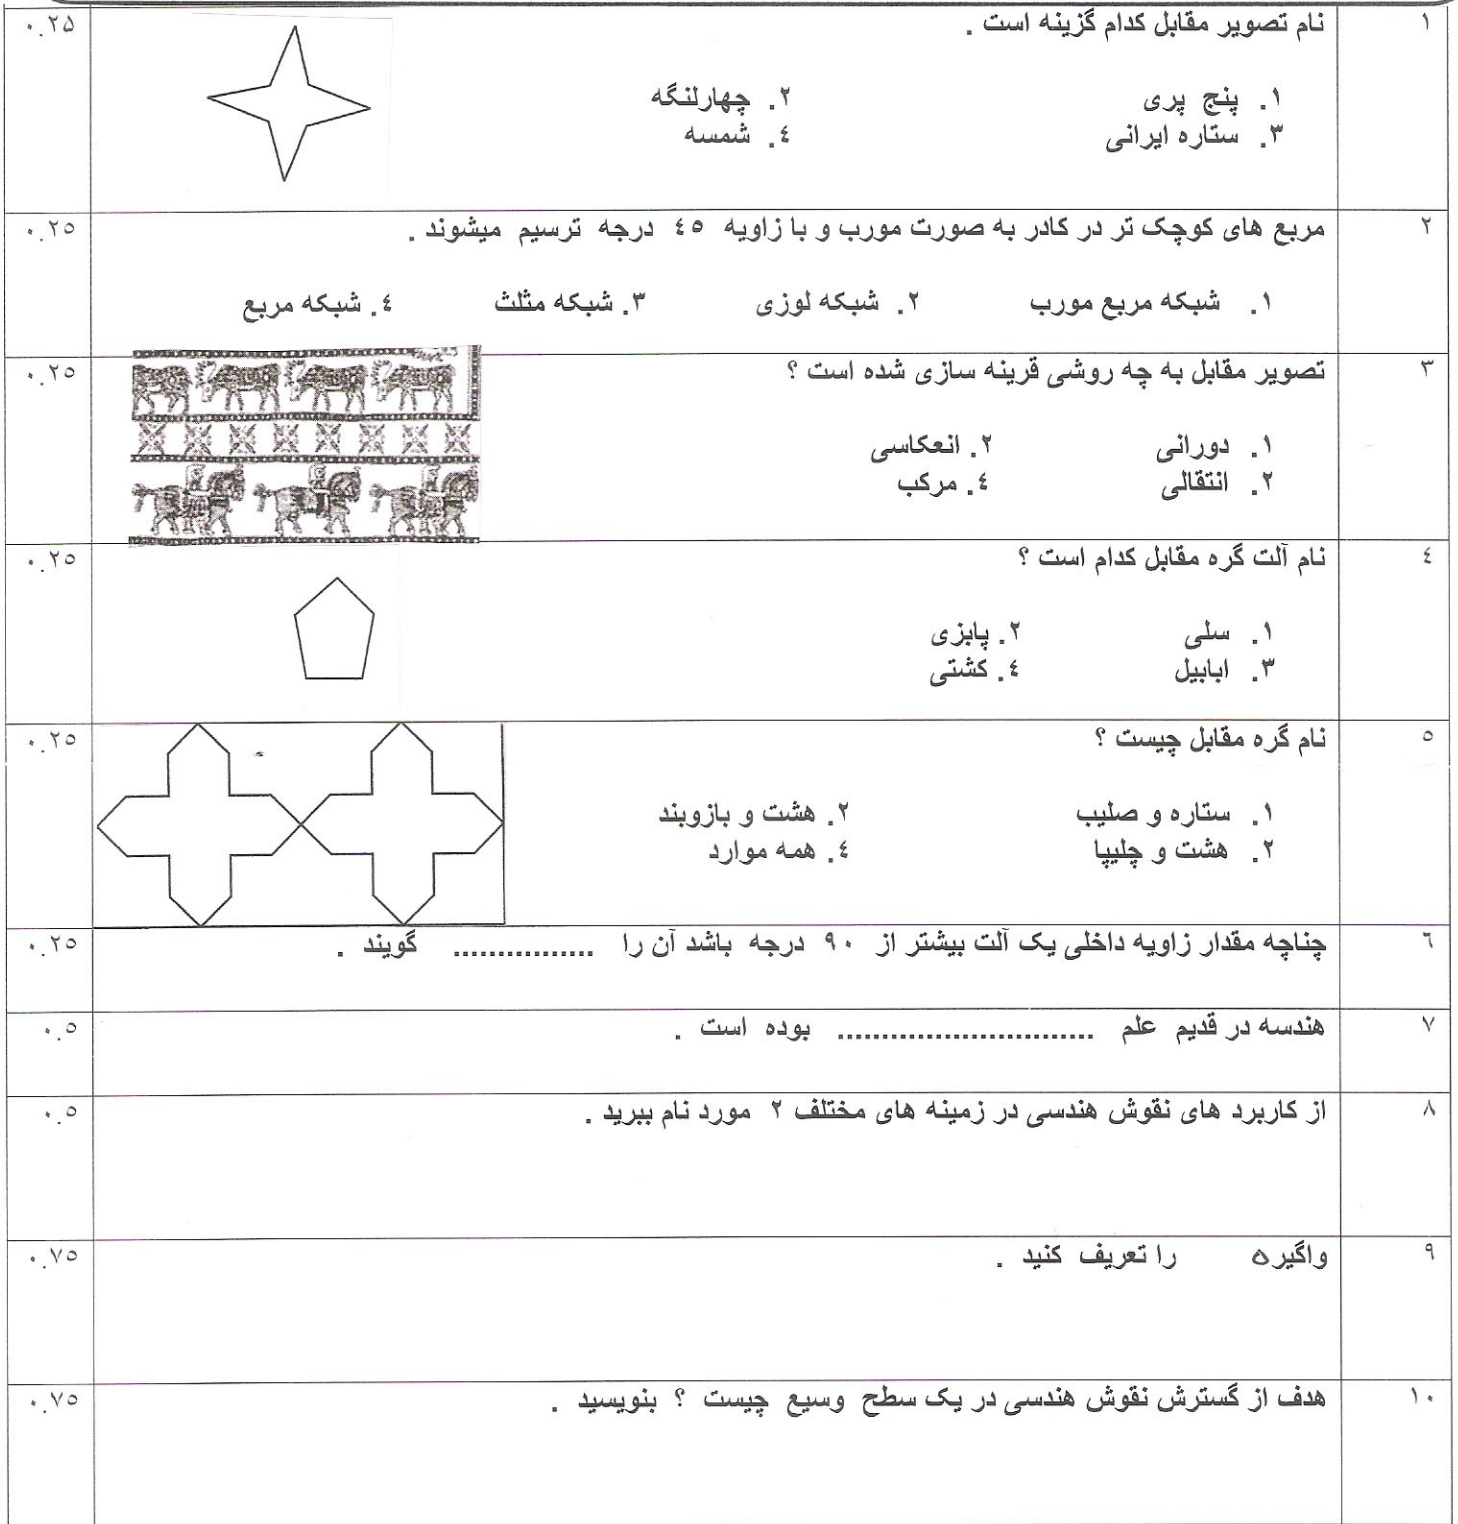 ۱ نام تصویر مقابل کدام گزینه است . ۰.۲۵
۱. پنج پری ۲. چهارلنگه
۳. ستاره ایرانی ٤. شمسه
۲ مربع های کوچک تر در کادر به صورت مورب و با زاویه ٤٥ درجه ترسیم میشوند . ۰.۲٥
۱. شبکه مربع مورب ۲. شبکه لوزی ۳. شبکه مثلث ٤. شبکه مربع
۳ تصویر مقابل به چه روشی قرینه سازی شده است ؟ ۰.۲٥
۱. دورانی ۲. انعکاسی
۲. انتقالی ٤. مرکب
٤ نام آلت گره مقابل کدام است ؟ ۰.۲٥
۱. سلی ۲. پابزی
۳. ابابیل ٤. کشتی
٥ نام گره مقابل چیست ؟ ۰.۲٥
۱. ستاره و صلیب ۲. هشت و بازوبند
۲. هشت و چلیپا ٤. همه موارد
٦ چناچه مقدار زاویه داخلی یک آلت بیشتر از ۹۰ درجه باشد آن را ................ گویند . ۰.۲٥
۷ هندسه در قدیم علم ............................. بوده است . ۰.٥
۸ از کاربرد های نقوش هندسی در زمینه های مختلف ۲ مورد نام ببرید . ۰.٥
۹ واگیره را تعریف کنید . ۰.۷٥
۱۰ هدف از گسترش نقوش هندسی در یک سطح وسیع چیست ؟ بنویسید . ۰.۷٥